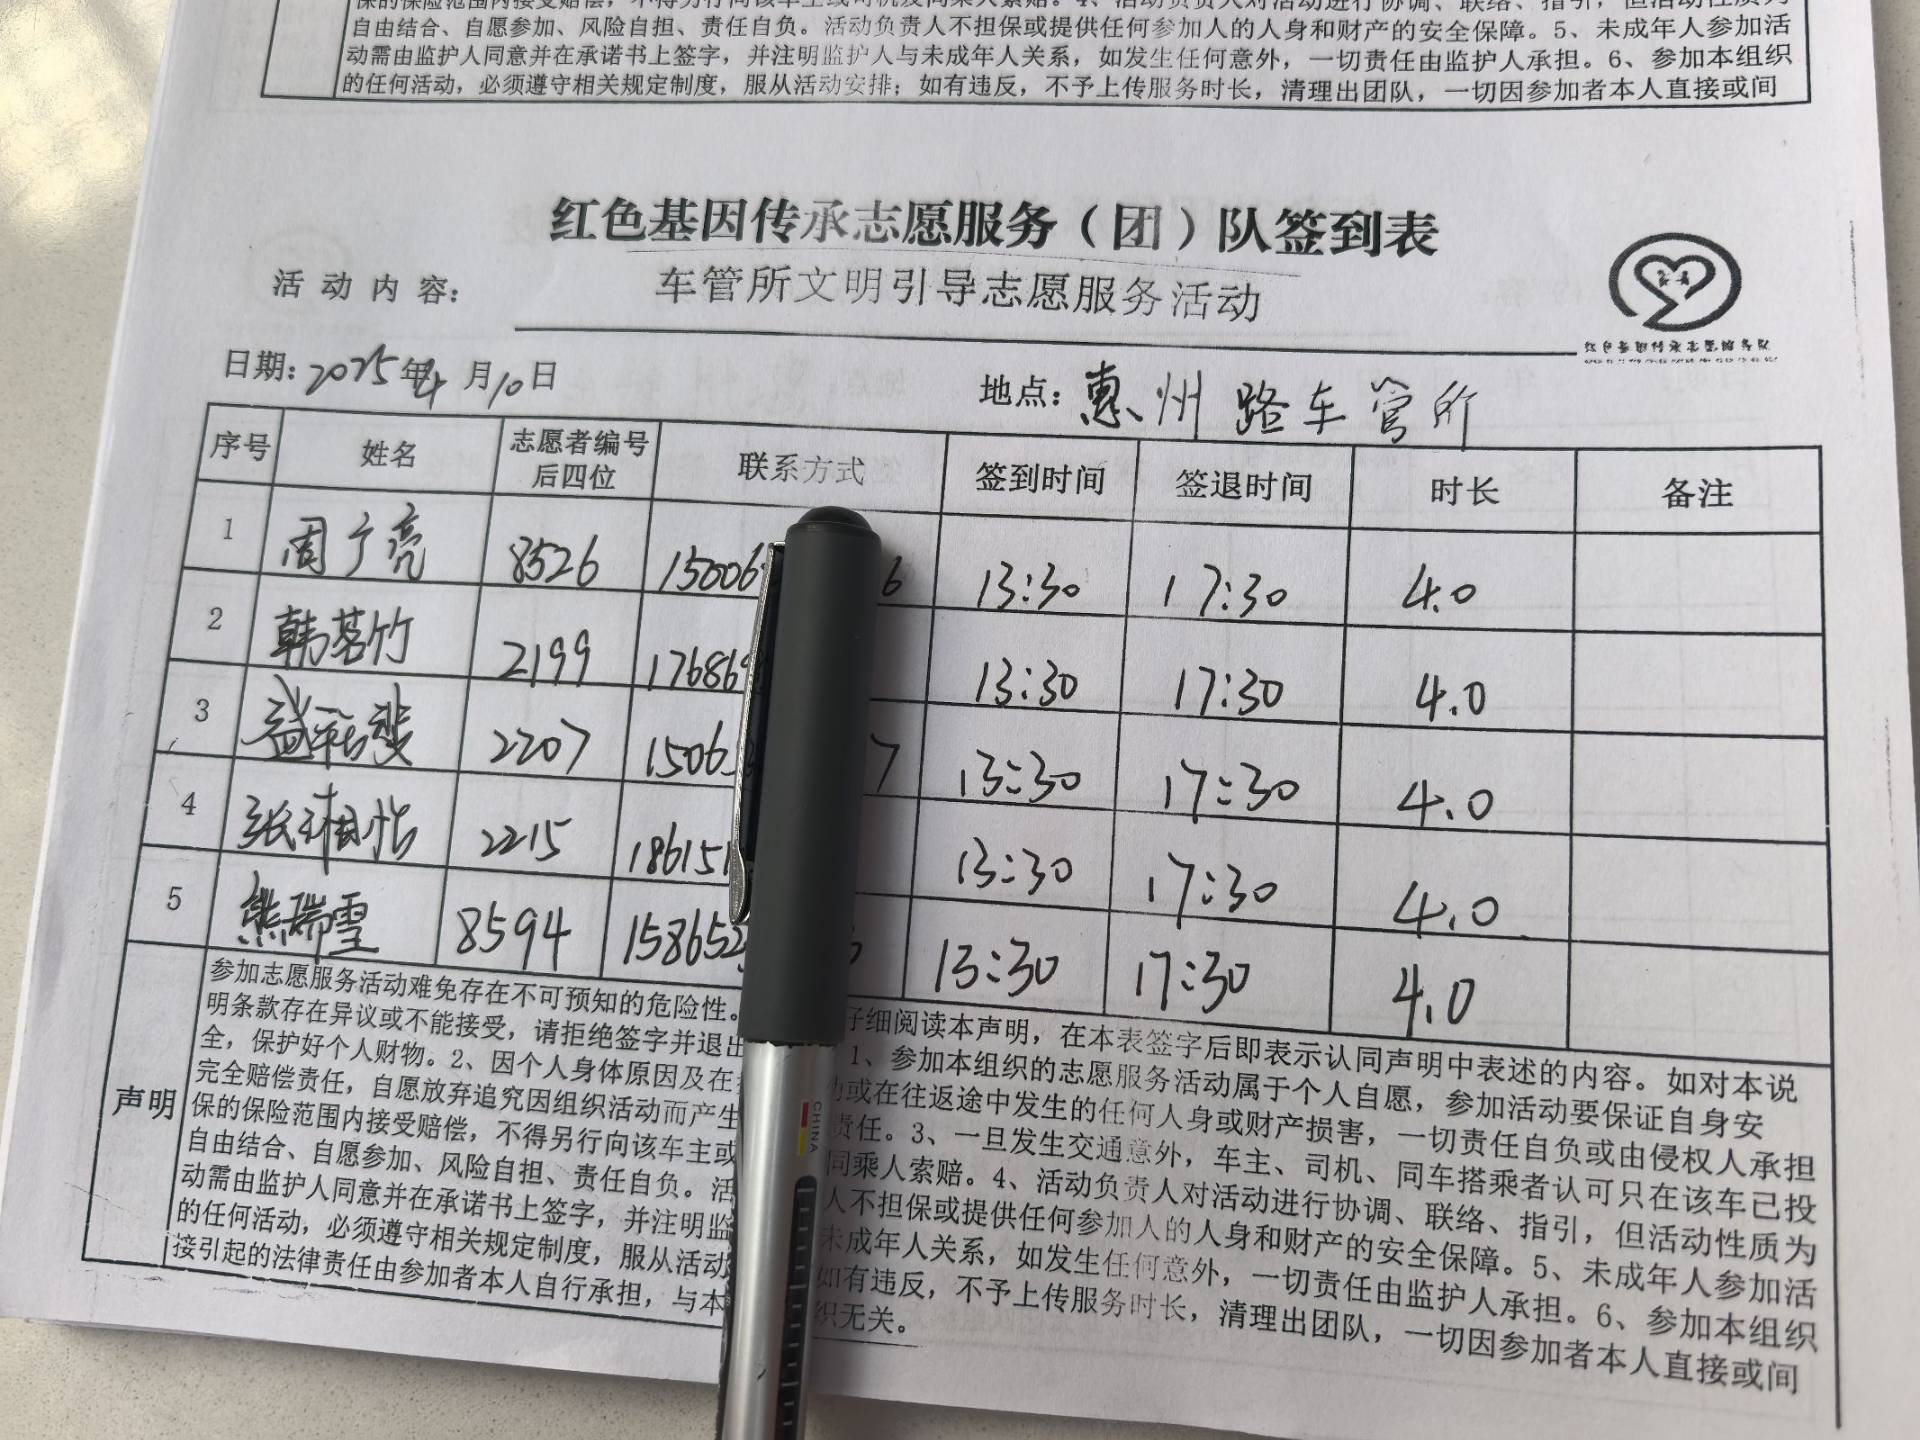 自由结合、自愿参加、风险自担、责任自负。活动负责人不担保或提供任何参加人的人身和财产的安全保障。5、未成年人参加活
动需由监护人同意并在承诺书上签字，并注明监护人与未成年人关系，如发生任何意外，一切责任由监护人承担。6、参加本组织
的任何活动，必须遵守相关规定制度，服从活动安排；如有违反，不予上传服务时长，清理出团队，一切因参加者本人直接或间
红色基因传承志愿服务（团）队签到表
活动内容：车管所文明引导志愿服务活动
红色基因传承志愿服务队
日期：2025年4月10日 地点：惠州路车管所
序号 姓名 志愿者编号后四位 联系方式 签到时间 签退时间 时长 备注
1 周广亮 8526 15006 6 13:30 17:30 4.0
2 韩茗竹 2199 17686 13:30 17:30 4.0
3 2207 15063 7 13:30 17:30 4.0
4 张湘怡 2215 186151 13:30 17:30 4.0
5 熊瑞雪 8594 158652 13:30 17:30 4.0
声明
参加志愿服务活动难免存在不可预知的危险性。 仔细阅读本声明，在本表签字后即表示认同声明中表述的内容。如对本说
明条款存在异议或不能接受，请拒绝签字并退出 1、参加本组织的志愿服务活动属于个人自愿，参加活动要保证自身安
全，保护好个人财物。2、因个人身体原因及在 或在往返途中发生的任何人身或财产损害，一切责任自负或由侵权人承担
完全赔偿责任，自愿放弃追究因组织活动而产生 责任。3、一旦发生交通意外，车主、司机、同车搭乘者认可只在该车已投
保的保险范围内接受赔偿，不得另行向该车主或 同乘人索赔。4、活动负责人对活动进行协调、联络、指引，但活动性质为
自由结合、自愿参加、风险自担、责任自负。活 人不担保或提供任何参加人的人身和财产的安全保障。5、未成年人参加活
动需由监护人同意并在承诺书上签字，并注明监 未成年人关系，如发生任何意外，一切责任由监护人承担。6、参加本组织
的任何活动，必须遵守相关规定制度，服从活动 如有违反，不予上传服务时长，清理出团队，一切因参加者本人直接或间
接引起的法律责任由参加者本人自行承担，与本 织无关。
CHINA